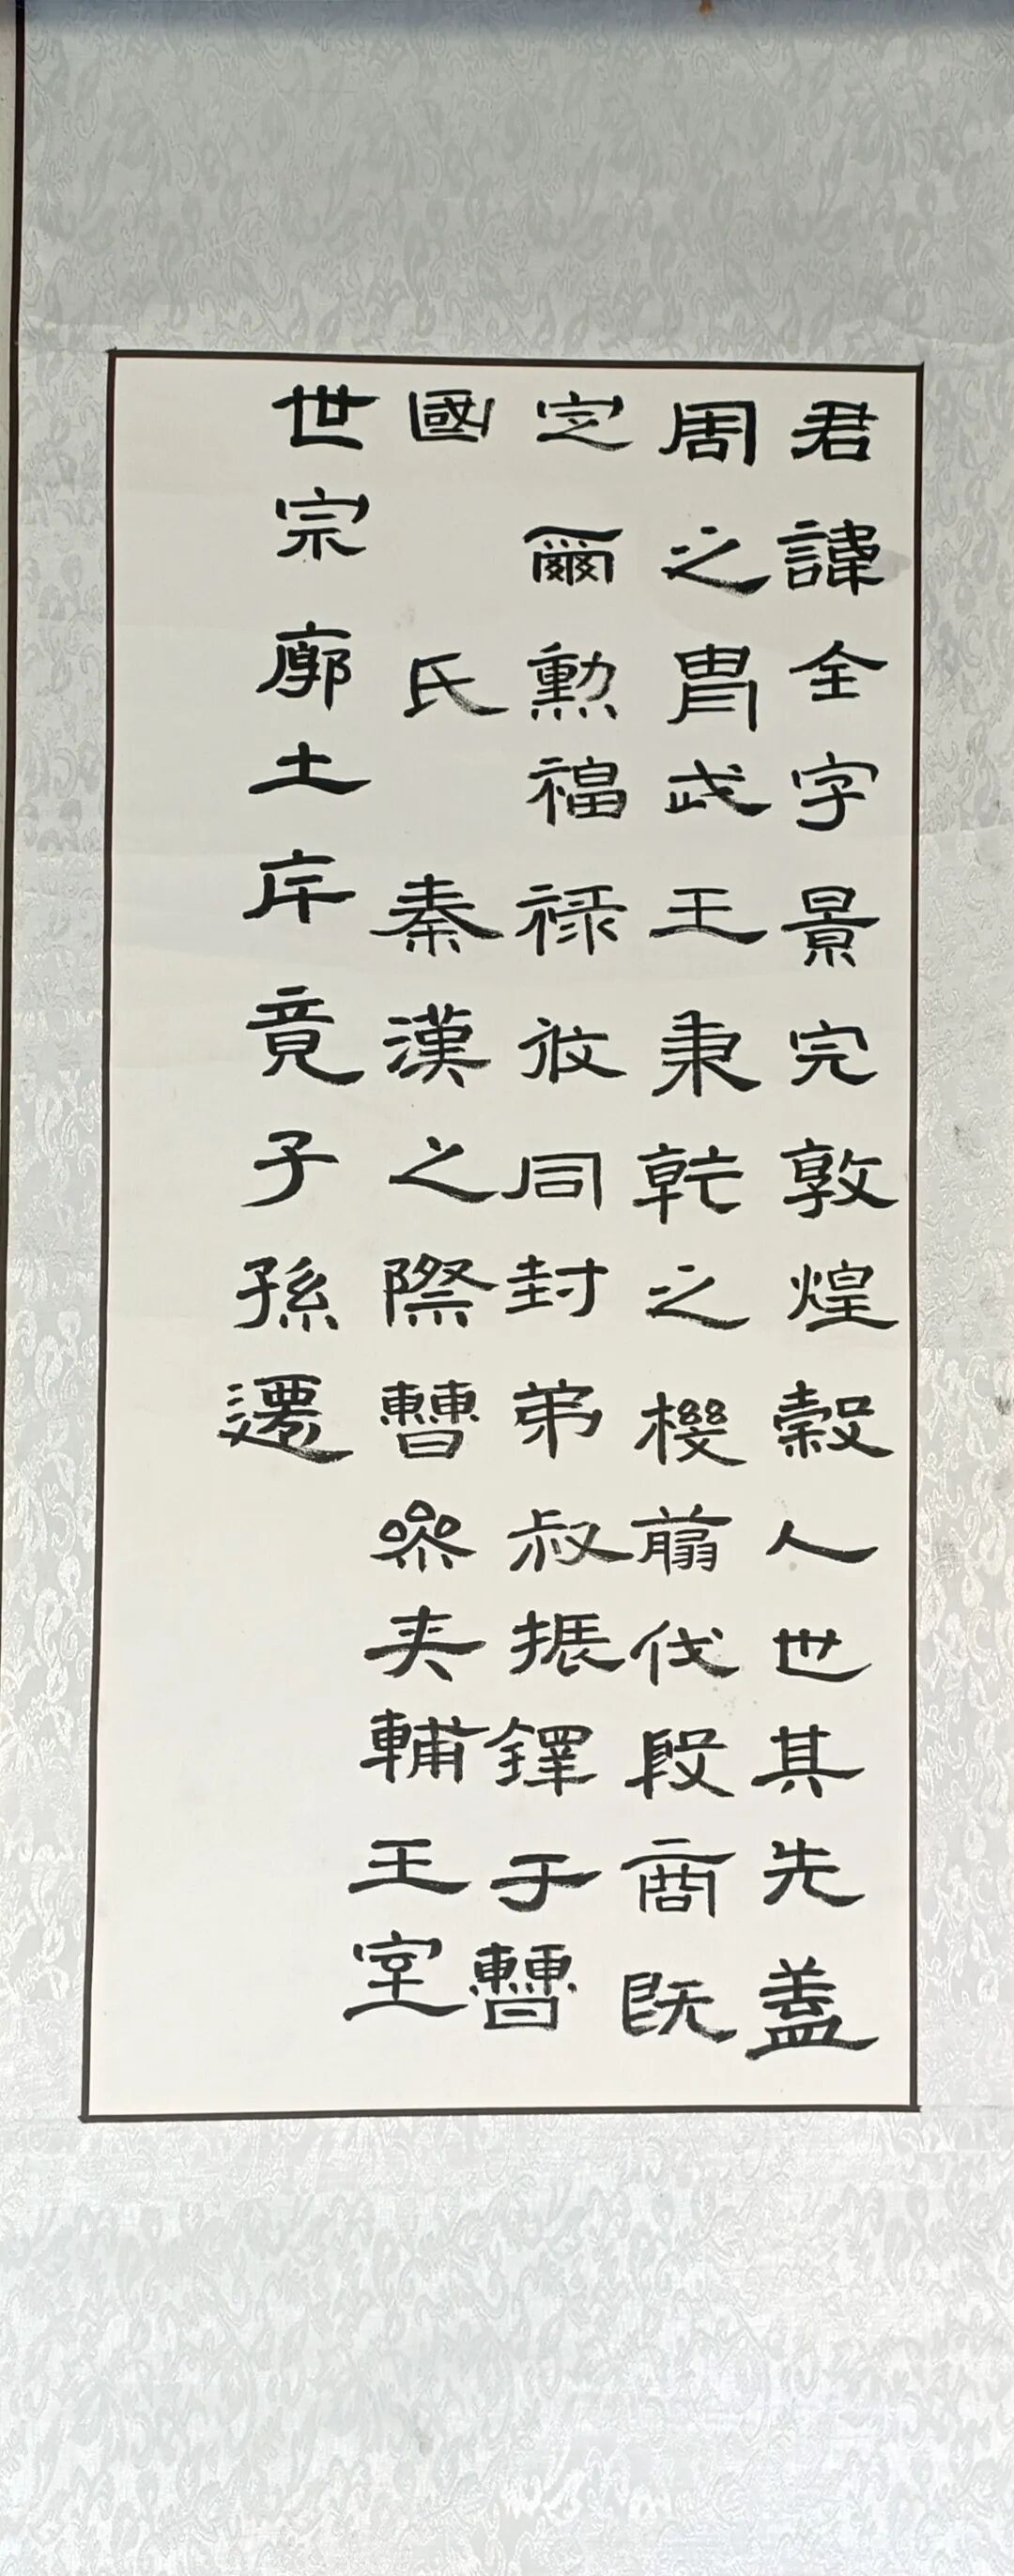 君諱全字景完敦煌穀人世其先蓋
周之胄武王秉乾之機翦伐殷商既
定爾勲福祿攸同封弟叔振鐸于曹
國氏秦漢之際曹參夹輔王室
世宗廓土斥竟子孫遷